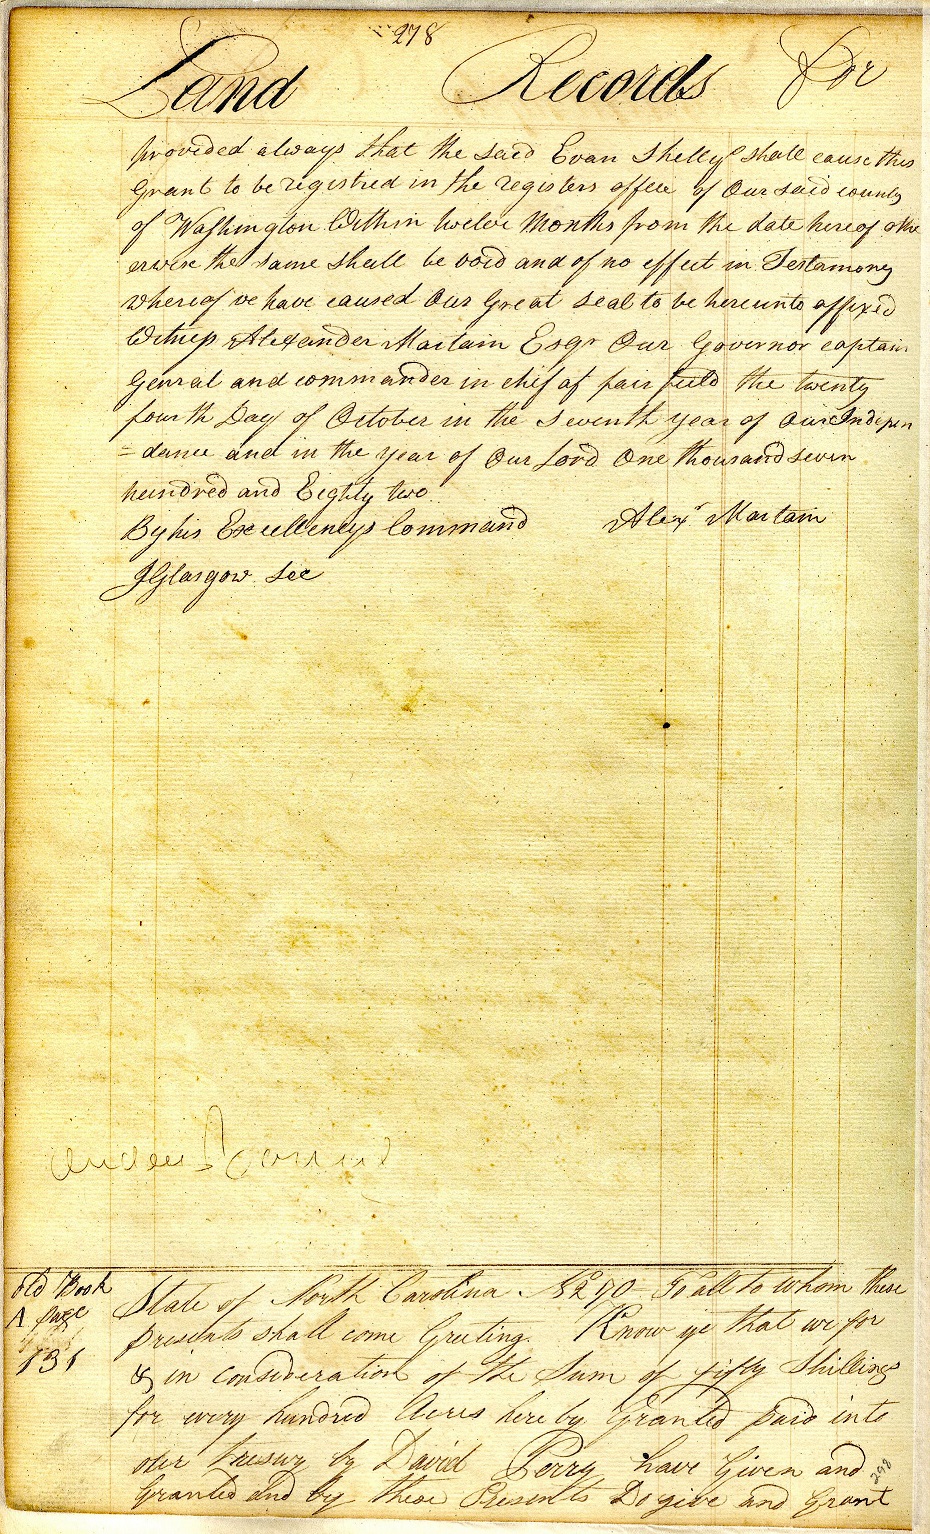 278
Land Records for
provided always that the said Evan Shelly shall cause this
Grant to be registred in the registers office of Our said county
of Washington Within twelve Months from the date hereof othe
erwise the same shall be void and of no effect in Testamony
whereof we have caused Our Great seal to be hereunto affixed
Witness Alexander Martain Esqr Our Governor captain
Genral and commander in chief at fairfield the twenty
fourth Day of October in the Seventh year of Our Indipen
=dance and in the year of Our Lord One thousand seven
hundred and Eighty two
By his Excellencys Command Alexr Martain
J Glasgow Sec
old Book
A page
131
State of North Carolina No 270 To all to whom these
presents shall come Greeting. Know ye that we for
& in consideration of the Sum of fifty Shillings
for every hundred Acres hereby Granted paid into
our tresury by David Perry have Given and
Granted and by these Presents Do give and Grant
298